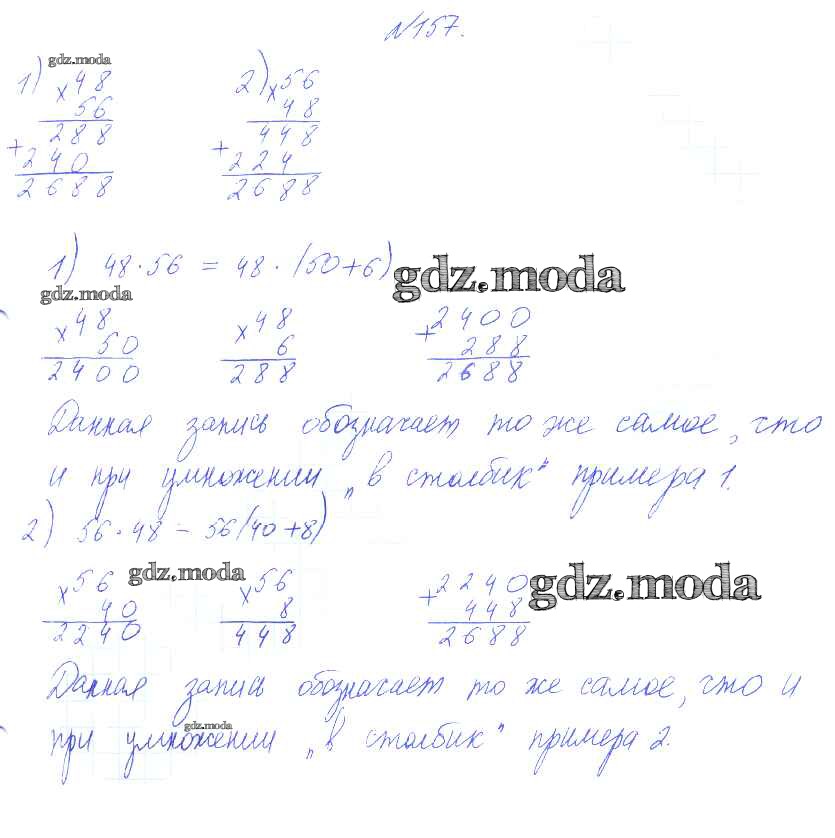 №157.
gdz.moda
1) × 48 2) × 56
56 48
288 448
+ 240 + 224
2688 2688
1) 48·56 = 48·(50+6)
gdz.moda
gdz.moda
× 48 × 48 + 2400
50 6 288
2400 288 2688
Данная запись обозначает то же самое, что
и при умножении „в столбик" примера 1.
2) 56·48 = 56(40+8)
× 56 gdz.moda × 56 + 2240 gdz.moda
40 8 448
2240 448 2688
Данная запись обозначает то же самое, что и
gdz.moda
при умножении „в столбик" примера 2.